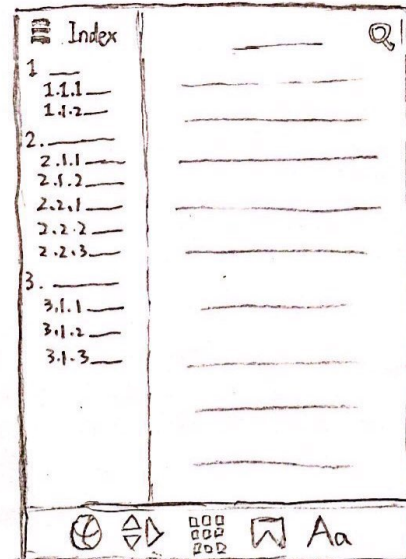 Index
1
1.1.1
1.1.2
2.
2.1.1
2.1.2
2.2.1
2.2.2
2.2.3
3.
3.1.1
3.1.2
3.1.3
Aa